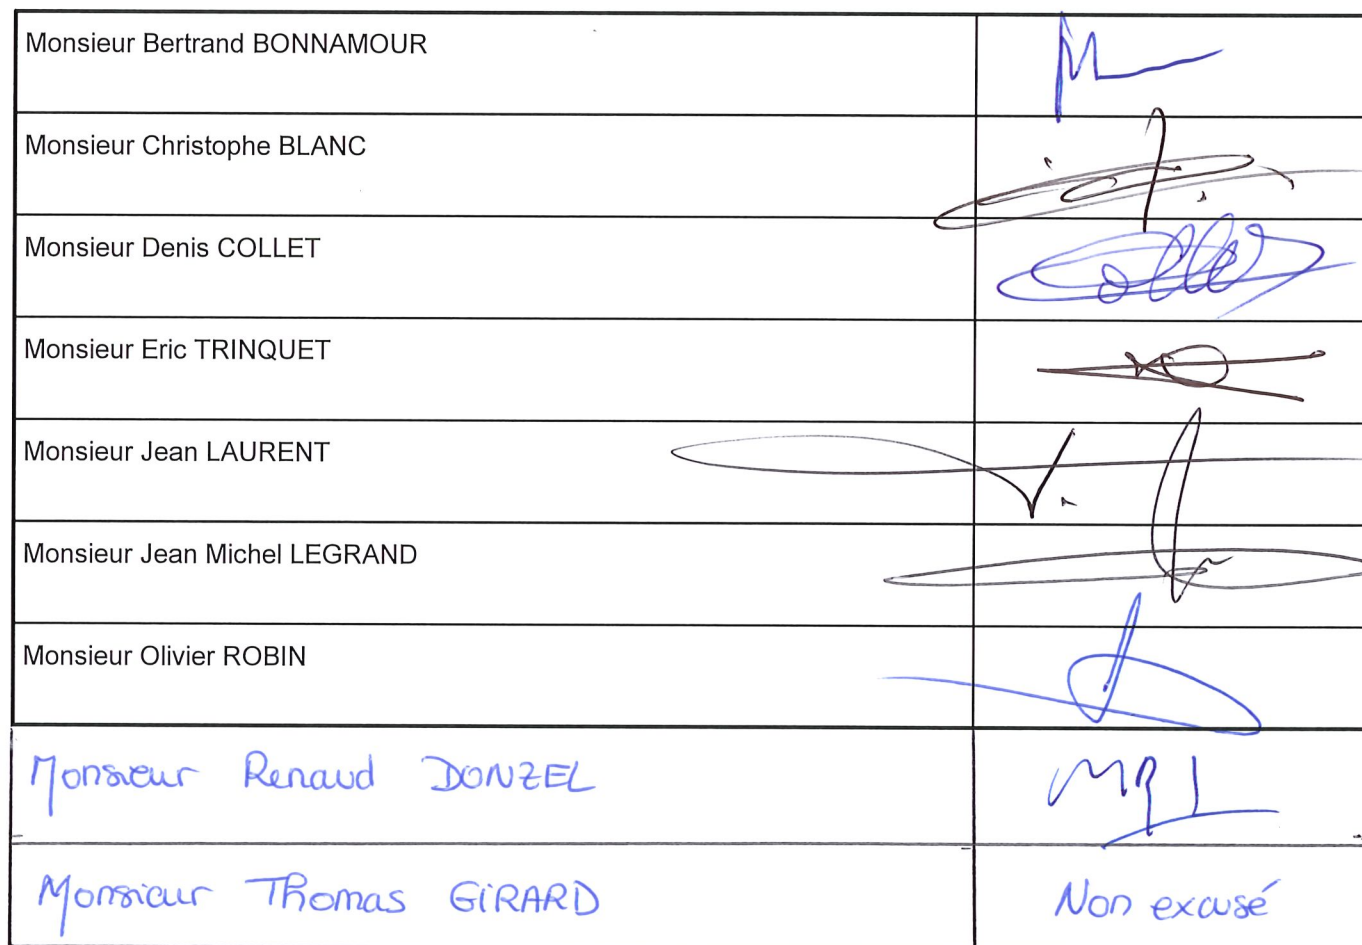 Monsieur Bertrand BONNAMOUR
Monsieur Christophe BLANC
Monsieur Denis COLLET
Monsieur Eric TRINQUET
Monsieur Jean LAURENT
Monsieur Jean Michel LEGRAND
Monsieur Olivier ROBIN
Monsieur Renaud DONZEL
Monsieur Thomas GIRARD Non excusé